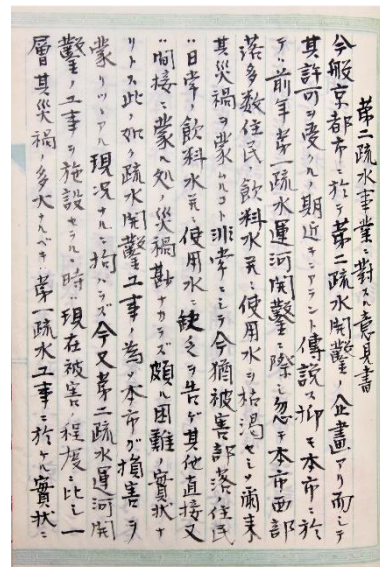 第二疏水事業ニ對スル意見書
今般京都市ニ於テ第二疏水開鑿ノ企畫アリ而シテ
其許可ヲ受クル期近キニアラント傳説ス抑モ本市ニ於
テハ前年第一疏水運河開鑿ニ際シ忽チ本市西部
落多数住民ノ飲料水并ニ使用水ヲ枯渇セシメ爾来
其災禍ヲ蒙ムルコト非常ニシテ今猶被害部落住民
ハ日常ノ飲料水并ニ使用水ニ缺乏ヲ告ゲ其他直接又
ハ間接ニ蒙ル処ノ災禍尠ナカラズ頗ル困難ノ實状ナ
リトス此ノ如ク疏水開鑿工事ノ為メ本市ガ損害ヲ
蒙リツヽアル現况ナルニ拘ハラズ今又第二疏水運河開
鑿ノ工事ヲ施設セラルヽ時ハ現在被害ノ程度ニ比シ一
層其災禍ノ多大ナルベキハ第一疏水工事ニ於ケル實状ニ